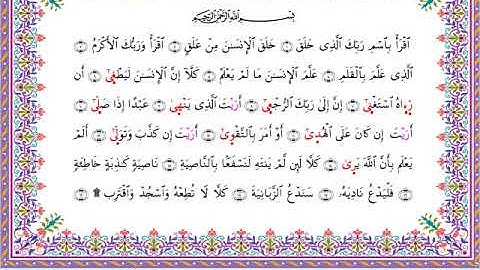 بِسْمِ اللَّهِ الرَّحْمَٰنِ الرَّحِيمِ
اقْرَأْ بِاسْمِ رَبِّكَ الَّذِي خَلَقَ ۝ خَلَقَ الْإِنسَٰنَ مِنْ عَلَقٍ ۝ اقْرَأْ وَرَبُّكَ الْأَكْرَمُ ۝
الَّذِي عَلَّمَ بِالْقَلَمِ ۝ عَلَّمَ الْإِنسَٰنَ مَا لَمْ يَعْلَمْ ۝ كَلَّا إِنَّ الْإِنسَٰنَ لَيَطْغَىٰ ۝ أَن
رَءَاهُ اسْتَغْنَىٰ ۝ إِنَّ إِلَىٰ رَبِّكَ الرُّجْعَىٰ ۝ أَرَيْتَ الَّذِي يَنْهَىٰ ۝ عَبْدًا إِذَا صَلَّىٰ ۝
أَرَيْتَ إِن كَانَ عَلَى الْهُدَىٰ ۝ أَوْ أَمَرَ بِالتَّقْوَىٰ ۝ أَرَيْتَ إِن كَذَّبَ وَتَوَلَّىٰ ۝ أَلَمْ
يَعْلَم بِأَنَّ اللَّهَ يَرَىٰ ۝ كَلَّا لَئِن لَّمْ يَنتَهِ لَنَسْفَعًا بِالنَّاصِيَةِ ۝ نَاصِيَةٍ كَٰذِبَةٍ خَاطِئَةٍ
۝ فَلْيَدْعُ نَادِيَهُۥ ۝ سَنَدْعُ الزَّبَانِيَةَ ۝ كَلَّا لَا تُطِعْهُ وَاسْجُدْ وَاقْتَرِب ۩ ۝